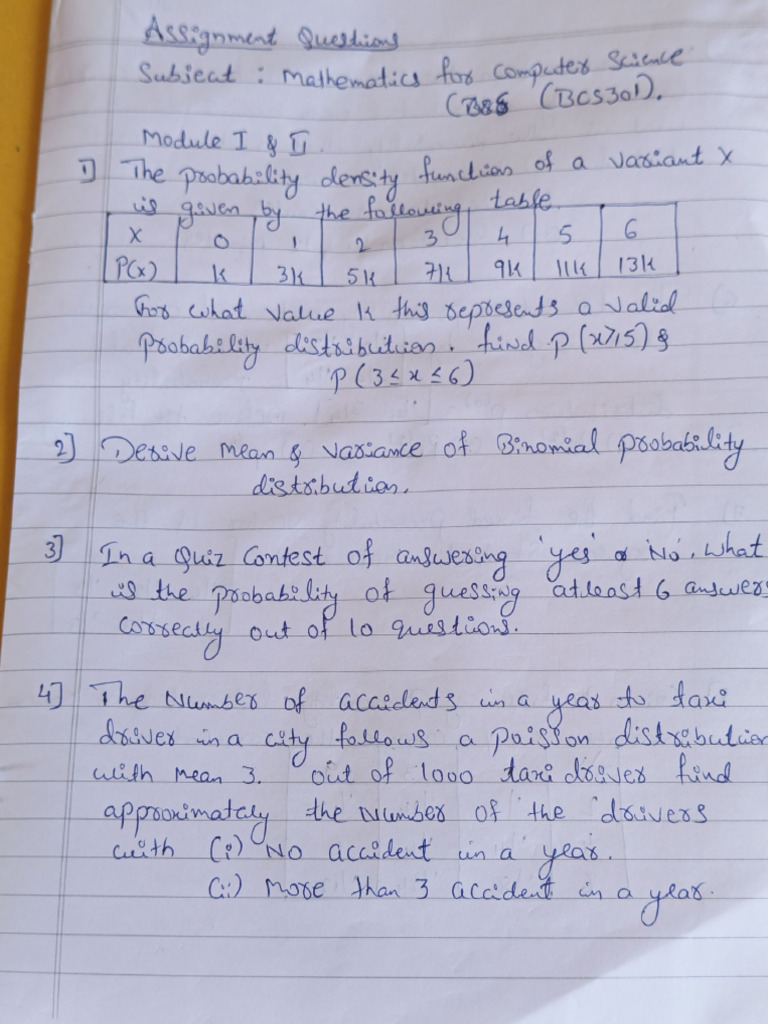 Assignment Questions
Subject : Mathematics for Computer Science
(BCS301).
Module I & II
1] The probability density function of a variant X
is given by the following table
X 0 1 2 3 4 5 6
P(x) k 3k 5k 7k 9k 11k 13k
For what value k this represents a valid
probability distribution. find p(x≥5) &
p(3≤x≤6)
2] Derive mean & variance of Binomial probability
distribution.
3] In a Quiz Contest of answering 'yes' or No. What
is the probability of guessing atleast 6 answers
correctly out of 10 questions.
4] The Number of accidents in a year to taxi
driver in a city follows a poisson distribution
with mean 3. out of 1000 taxi driver find
approximately the number of the drivers
with (i) No accident in a year.
(ii) more than 3 accident in a year.